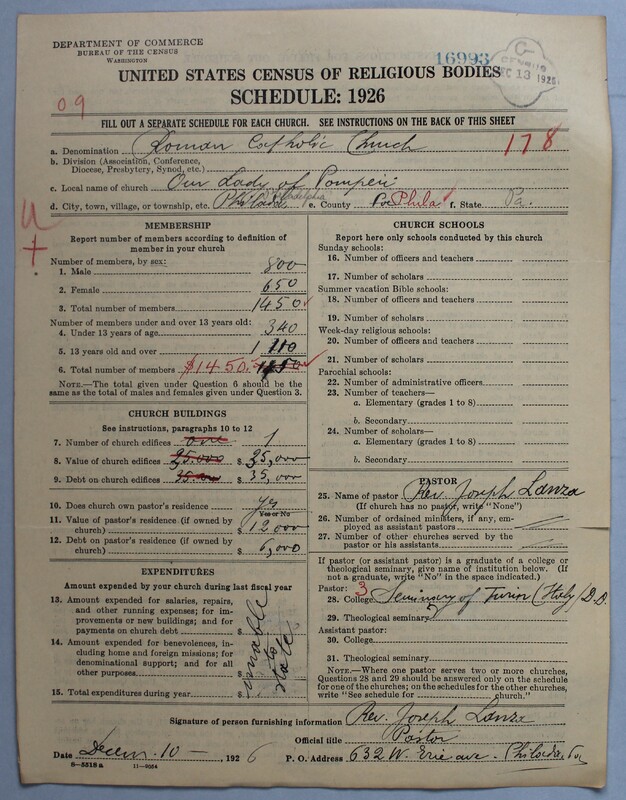 DEPARTMENT OF COMMERCE
BUREAU OF THE CENSUS
WASHINGTON
16993
CENSUS
DEC 13 1926
UNITED STATES CENSUS OF RELIGIOUS BODIES
SCHEDULE: 1926
09
FILL OUT A SEPARATE SCHEDULE FOR EACH CHURCH. SEE INSTRUCTIONS ON THE BACK OF THIS SHEET
a. Denomination Roman Catholic Church 178
b. Division (Association, Conference, Diocese, Presbytery, Synod, etc.)
c. Local name of church Our Lady of Pompeii
d. City, town, village, or township, etc. Philada Philadelphia e. County Phila f. State Pa.
MEMBERSHIP
Report number of members according to definition of member in your church
Number of members, by sex:
1. Male 800
2. Female 650
3. Total number of members 1450
Number of members under and over 13 years old:
4. Under 13 years of age 340
5. 13 years old and over 1110
6. Total number of members $1450. 1450
NOTE.—The total given under Question 6 should be the same as the total of males and females given under Question 3.
CHURCH BUILDINGS
See instructions, paragraphs 10 to 12
7. Number of church edifices one 1
8. Value of church edifices 25.000 $ 25,000
9. Debt on church edifices 35.000 $ 35,000
10. Does church own pastor's residence? yes
Yes or No
11. Value of pastor's residence (if owned by church) $ 12000
12. Debt on pastor's residence (if owned by church) $ 6,000
EXPENDITURES
Amount expended by your church during last fiscal year
13. Amount expended for salaries, repairs, and other running expenses; for improvements or new buildings; and for payments on church debt $
14. Amount expended for benevolences, including home and foreign missions; for denominational support; and for all other purposes $
15. Total expenditures during year $
unable to state
CHURCH SCHOOLS
Report here only schools conducted by this church
Sunday schools:
16. Number of officers and teachers
17. Number of scholars
Summer vacation Bible schools:
18. Number of officers and teachers
19. Number of scholars
Week-day religious schools:
20. Number of officers and teachers
21. Number of scholars
Parochial schools:
22. Number of administrative officers
23. Number of teachers—
a. Elementary (grades 1 to 8)
b. Secondary
24. Number of scholars—
a. Elementary (grades 1 to 8)
b. Secondary
PASTOR
25. Name of pastor Rev. Joseph Lanza
(If church has no pastor, write "None")
26. Number of ordained ministers, if any, employed as assistant pastors
27. Number of other churches served by the pastor or his assistants
If pastor (or assistant pastor) is a graduate of a college or theological seminary, give name of institution below. (If not a graduate, write "No" in the space indicated.)
Pastor: 3
28. College Seminary of Turin (Italy) D.D.
29. Theological seminary
Assistant pastor:
30. College
31. Theological seminary
NOTE.—Where one pastor serves two or more churches, Questions 28 and 29 should be answered only on the schedule for one of the churches; on the schedules for the other churches, write "See schedule for church."
Signature of person furnishing information Rev. Joseph Lanza
Official title Pastor
Date Decem. 10 — , 1926 P. O. Address 632 W. Erie ave. Philada, Pa.
8—5518a 11—9354